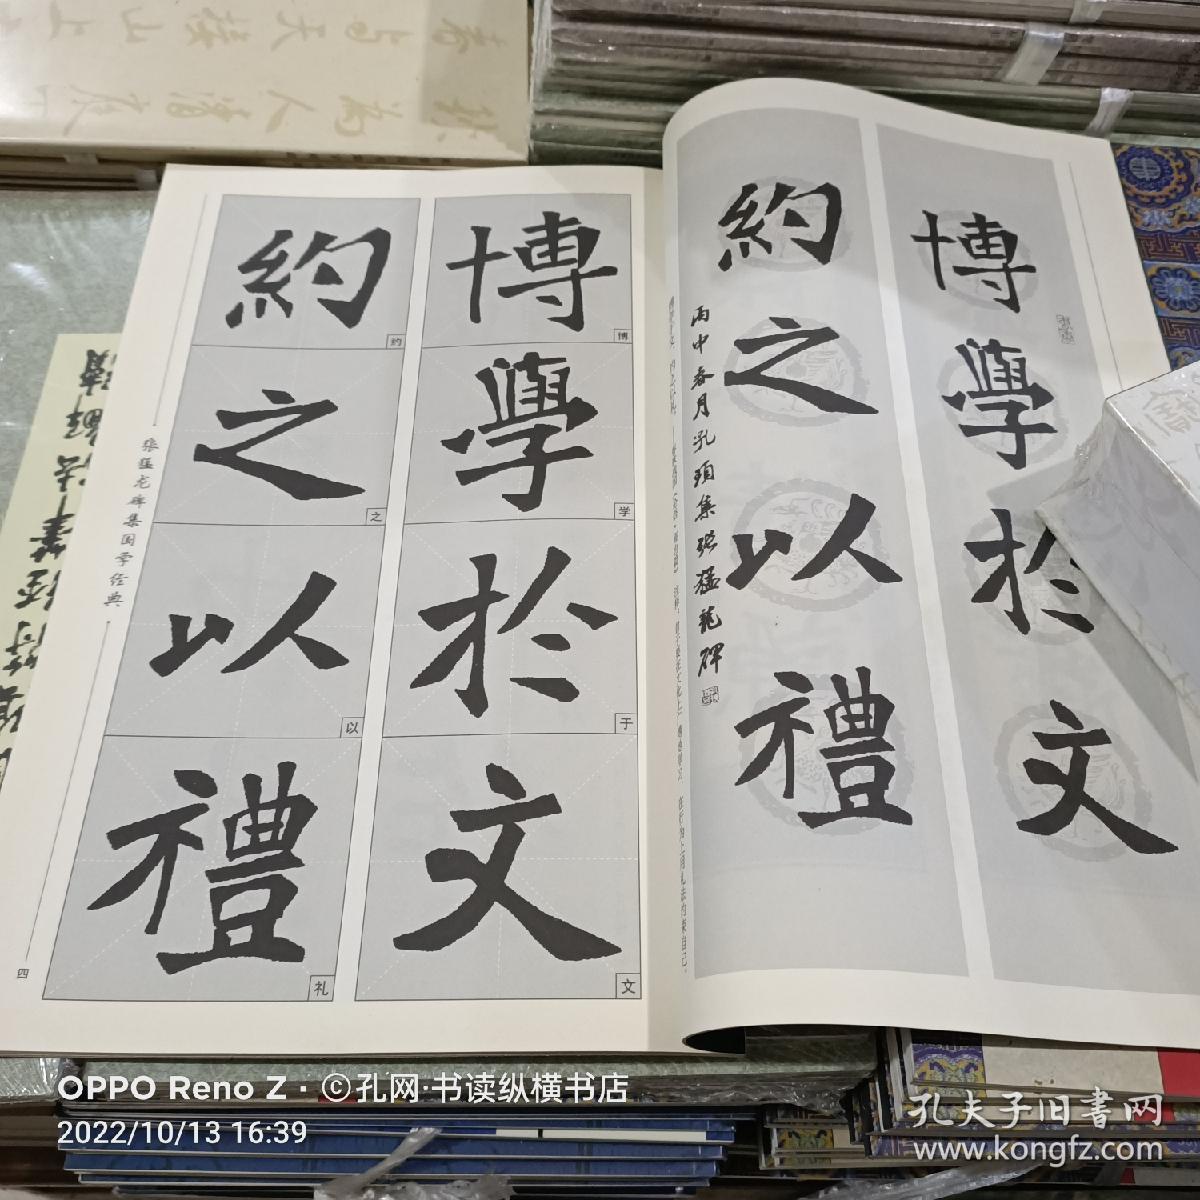 博學於文
約之以禮
博
学
于
文
约
之
以
礼
张猛龙碑集国学经典
四
博學於文
約之以禮
丙申春月孔頊集張猛龍碑
OPPO Reno Z · ©孔网·书读纵横书店
2022/10/13 16:39
孔夫子旧书网
www.kongfz.com